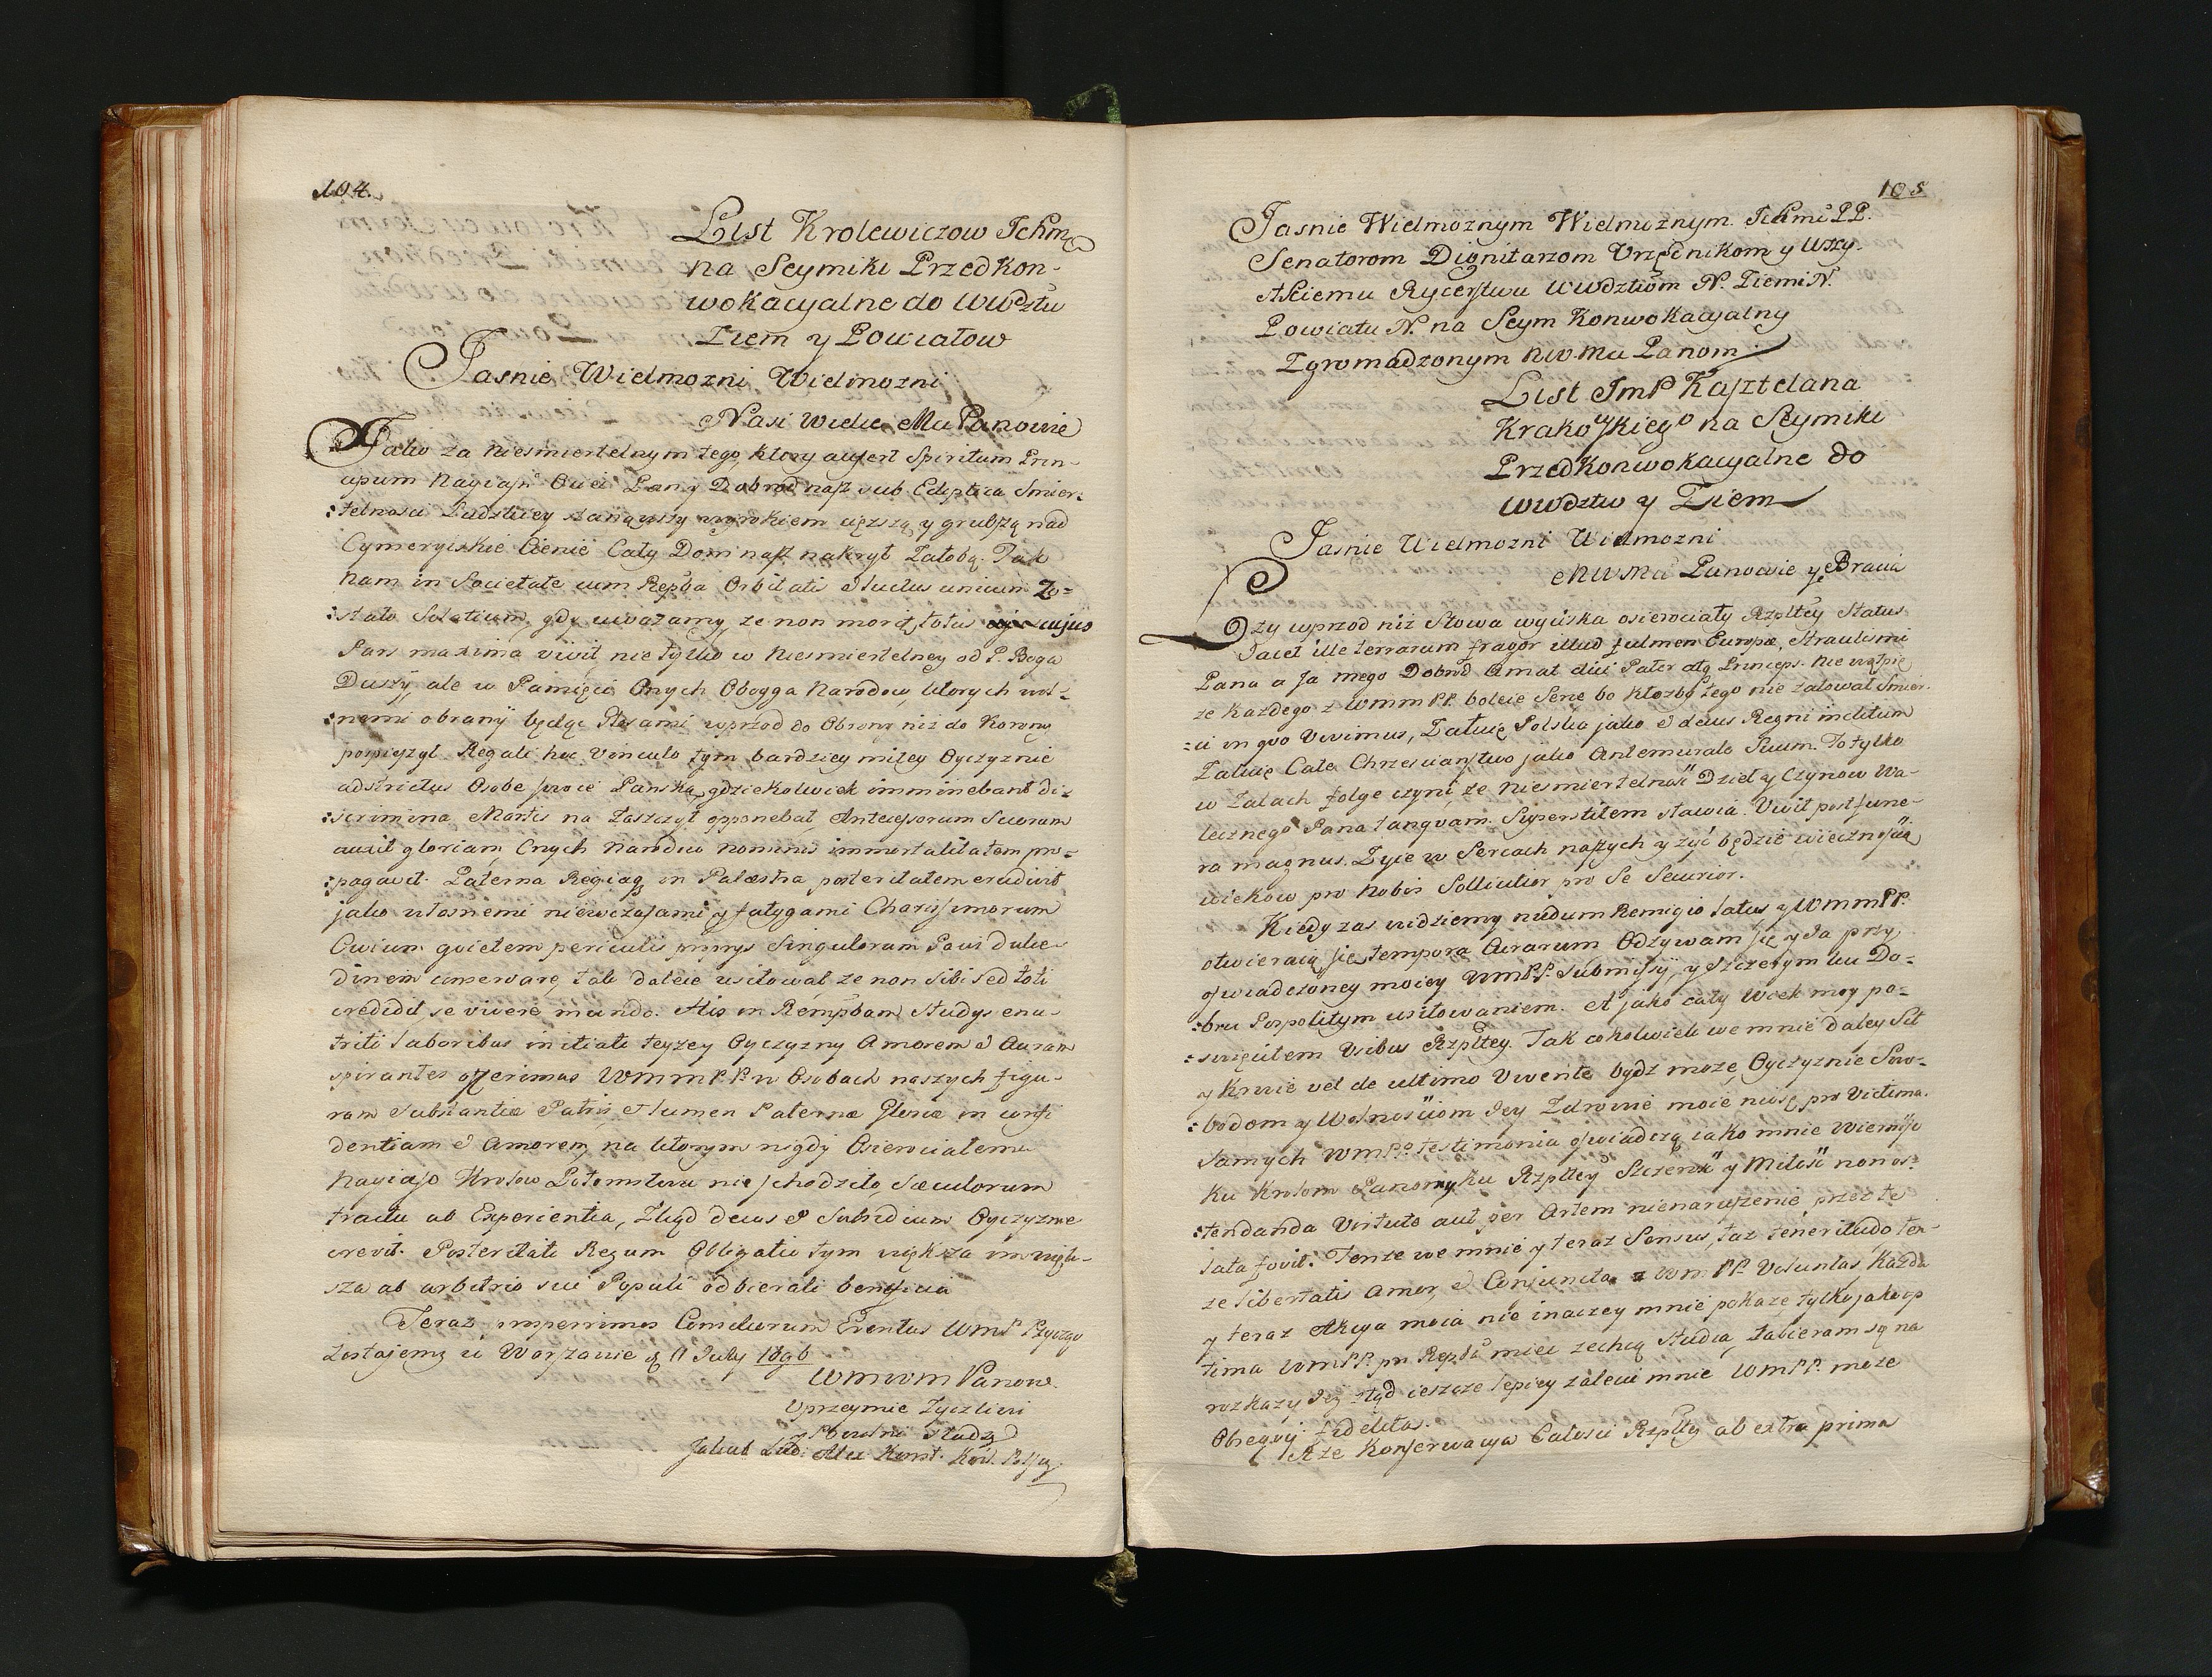 104.
List Krolewiczow Ichm
na Seymiki Przedkon-
wokacyalne do Wwdztw
Ziem y Powiatow
Jasnie Wielmozni Wielmozni
Nasi Wielce Mci Panowie
Jako za niesmiertelnym tego, ktory aufert Spiritum Prin-
cipum Nayias Oici Pan y Dobrod nasz sub Ecliptica Smier-
:telnosci Ludzkiey stanąwszy wyrokiem cięzszą y grubszą nad
Cymeryiskie Cienie Cały Dom nasz nakrył Załobą. Tak
nam in Societate cum Repba Orbitatis et luctus unicum Zo=
:stało Solatium, gdy uwazamy, ze non morit, totus cujus
Pars maxima vivit, nie tylko w niesmiertelney od P. Boga
Duszy, ale w Pamięci Onych Oboyga Narodow, ktorych wol-
:nemi obrany będąc Głosami wprzod do Obrony niz do Korony
pospieszył. Regali hoc Vinculo tym bardziey miłey Oyczyznie
adstrictus Osobę swoię Panską, gdziekolwiek imminebant di-
:scrimina Martis na Zaszczyt opponebat, Antecessorum Suorum
auxit gloriam, Onych Narodow nominis immortalitatem pro-
:pagavit. Paterna Regiaq in Palæstra posteritatem erudivit
jako własnemi niewczasami y fatygami Charissimorum
Civium quietem periculis proprys Singulorum Pacis dulce-
dinem conservare, tak dalece usiłował, ze non sibi sed toti
credidit, se vivere mundo. His in Rempbam Studys enu-
triti laboribus initiati teyzey Oyczyzny Amorem et Auram
spirantes offerimus WmmPP. w Osobach naszych figu-
ram Substantiæ Patris, et lumen Paternæ Gloriæ in confi
dentiam et Amorem, na ktorym nigdy Osierociałemu
Nayias Krolow Potomstwu nie schodziło, Sæculorum
tractu ab Experientia, Zkąd decus et Subsidium Oyczyznie
crevit. Posteritati Regum Obligatio tym większa im więk-
sza ab arbitrio sui Populi odbierali beneficia
Teraz prosperrimos Consiliorum Eventus WmP zycząc
Zostajemy w Warszawie d 11 July 1696
WmwmPanow.
Uprzeymie Zyczliwi
y Powolni Słudzy
Jakub Lud: Alex Konst. Krol. Polscy
105
Jasnie Wielmoznym Wielmoznym. Ichmc PP.
Senatorom Dignitarzom Urzędnikom y Wszy-
stkiemu Rycerstwu Wwdztwom N. Ziemi N.
Powiatu N. na Seym Konwokacyalny
Zgromadzonym nw.Mci Panom
List ImP Kasztelana
Krakowskiego na Seymiki
Przedkonwokacyalne do
Wwdztw y Ziem
Jasnie Wielmozni Wielmozni
MwMci Panowie y Bracia
Łzy wprzod niz Słowa wyciska osierociały Rzpltey Status
Jacet ille terrarum fragor illud fulmen Europæ, Straulismi
Pana a Ja mego Dobrod Amat dici Pater atq Princeps. Nie wątpię
ze kazdego z Wmm PP. boleie Serce bo ktozby tego nie załował Smier-
:ci in quo Vivimus, Załuie Polska jako et decus Regni inclitum
Załuie Całe Chrzescianstwo jako Antemurale Suum. To tylko
w Zalach folgę czyni, ze niesmiertelnosc Dzieł y Czynow Wa-
lecznego Pana tanquam Superstitem stawia. Vivit post fune-
ra magnus. Zyie w Sercach naszych y zyć będzie wiecznością
wiekow pro nobis Sollicitior pro Se Securior.
Kiedy zas widziemy nudum Remigio latus y WmmPP.
otwieraią się tempora Curarum Odzywam się y Ja przy
oswiadczoney moiey WmPP. submissyi, y Szczerym ku Do-
:bru Pospolitym usiłowaniem. A jako cały Wiek moy po-
:swięciłem Usibus Rzpltey. Tak cokolwiek we mnie daley Sił
y Krwie vel de ultimo Vivente bydz moze, Oyczyznie Swo-
:bodom y Wolnosciom Jey Zdrowie moie niosę pro Victima.
Samych WmPP. testimonia oswiadczą iako mnie Wiernosc
ku Krolom Panom, ku Rzpltey Szczerosc y Miłosc non os-
:tendanda Virtute aut per Artem nienaruszenie przez te
lata fovit. Tenze we mnie y teraz Sensus, taz teneritudo ten-
ze libertatis Amor, et Conjuncta z Wm PP. Voluntas, Kazda
y teraz Akcya moia nie inaczey mnie pokaze tylko jako op
tima WmPP. pro Repba miec zechcą Studia, Zabieram się na
rozkazy Jey ztąd ieszcze lepiey zalecić mnie WmPP. moze
Obseqvy fidelitas.
A ze Konserwacya Całosci Rzpltey ab extra prima